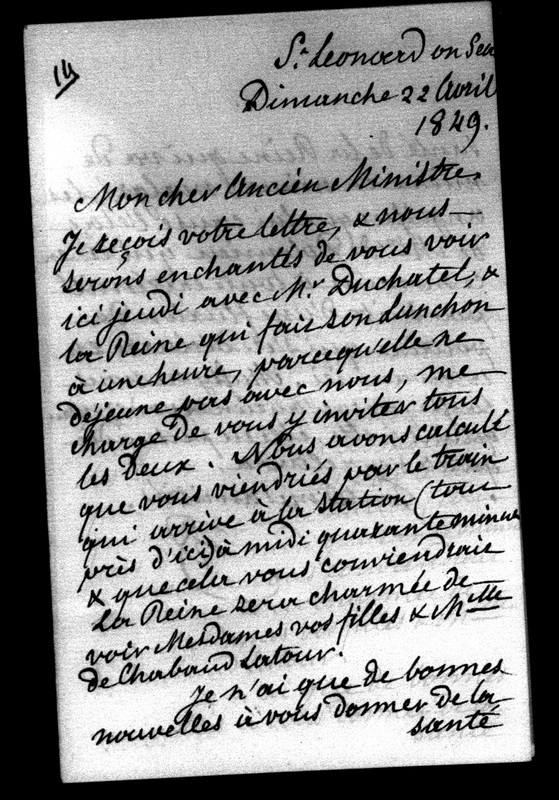 14
St. Leonard on Sea
Dimanche 22 Avril
1849.
Mon cher Ancien Ministre
Je reçois votre lettre, & nous
serons enchantés de vous voir
ici jeudi avec Mr. Duchatel, &
la Reine qui fait son Lunchon
à une heure, parcequ'elle ne
déjeune pas avec nous, me
charge de vous y inviter tous
les deux. Nous avons calculé
que vous viendriés par le train
qui arrive à la station (tout
près d'ici) à midi quarante minutes
& que cela vous conviendrait
La Reine sera charmée de
voir Mesdames vos filles & Mlle
de Chabaud Latour.
Je n'ai que de bonnes
nouvelles à vous donner de la
santé